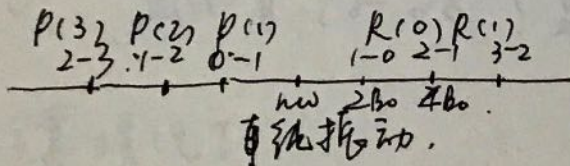 P(3) P(2) P(1) R(0) R(1)
2-3 1-2 0-1 1-0 2-1 3-2
hω 2B₀ 4B₀.
纯振动.